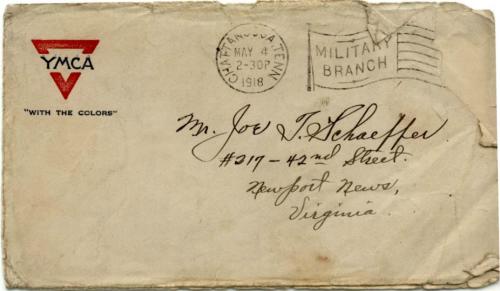 YMCA
"WITH THE COLORS"
CHATTANOOGA, TENN
MAY 4
2-30P
1918
MILITARY
BRANCH
Mr. Joe T. Schaeffer
#217-42nd Street.
Newport News,
Virginia